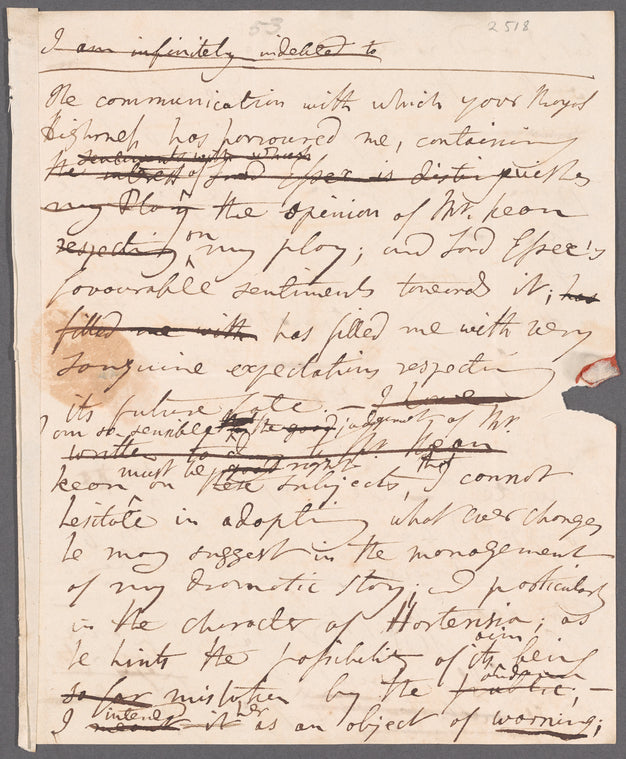 53
2518
I am infinitely indebted to
The communication with which your Royal
Highness has honoured me, containing
sentiments with which
the interest of Lord Essex is distinguishes
my Play the opinion of Mr. Kean
respecting on my play; and Lord Essex's
favourable sentiments towards it; has
filled me with has filled me with very
sanguine expectations respecting
its future fate. – I have
I am so sensible the good judgment of Mr.
written to Mr. Kean
must be good right that
Kean on these subjects, I cannot
hesitate in adopting what ever changes
he may suggest in the management
of my dramatic story; and particularly
in the character of Hortensia; as
aim
he hints the possibility of its being
audience
so far mistaken by the public; –
intend her
I meant it as an object of warning;